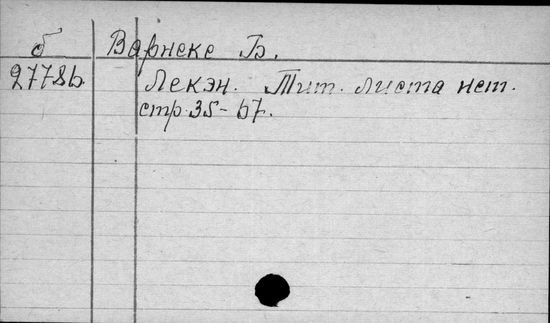 б Варнеке Б.
27786 Лекэн. Тит. листа нет.
стр. 35-67.